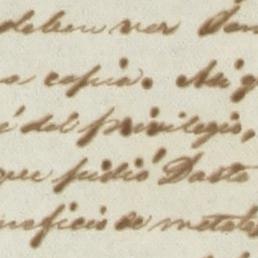 deben ver
a copia. Asi q
é del privilegio,
que pidió Dasto
neficio de metales